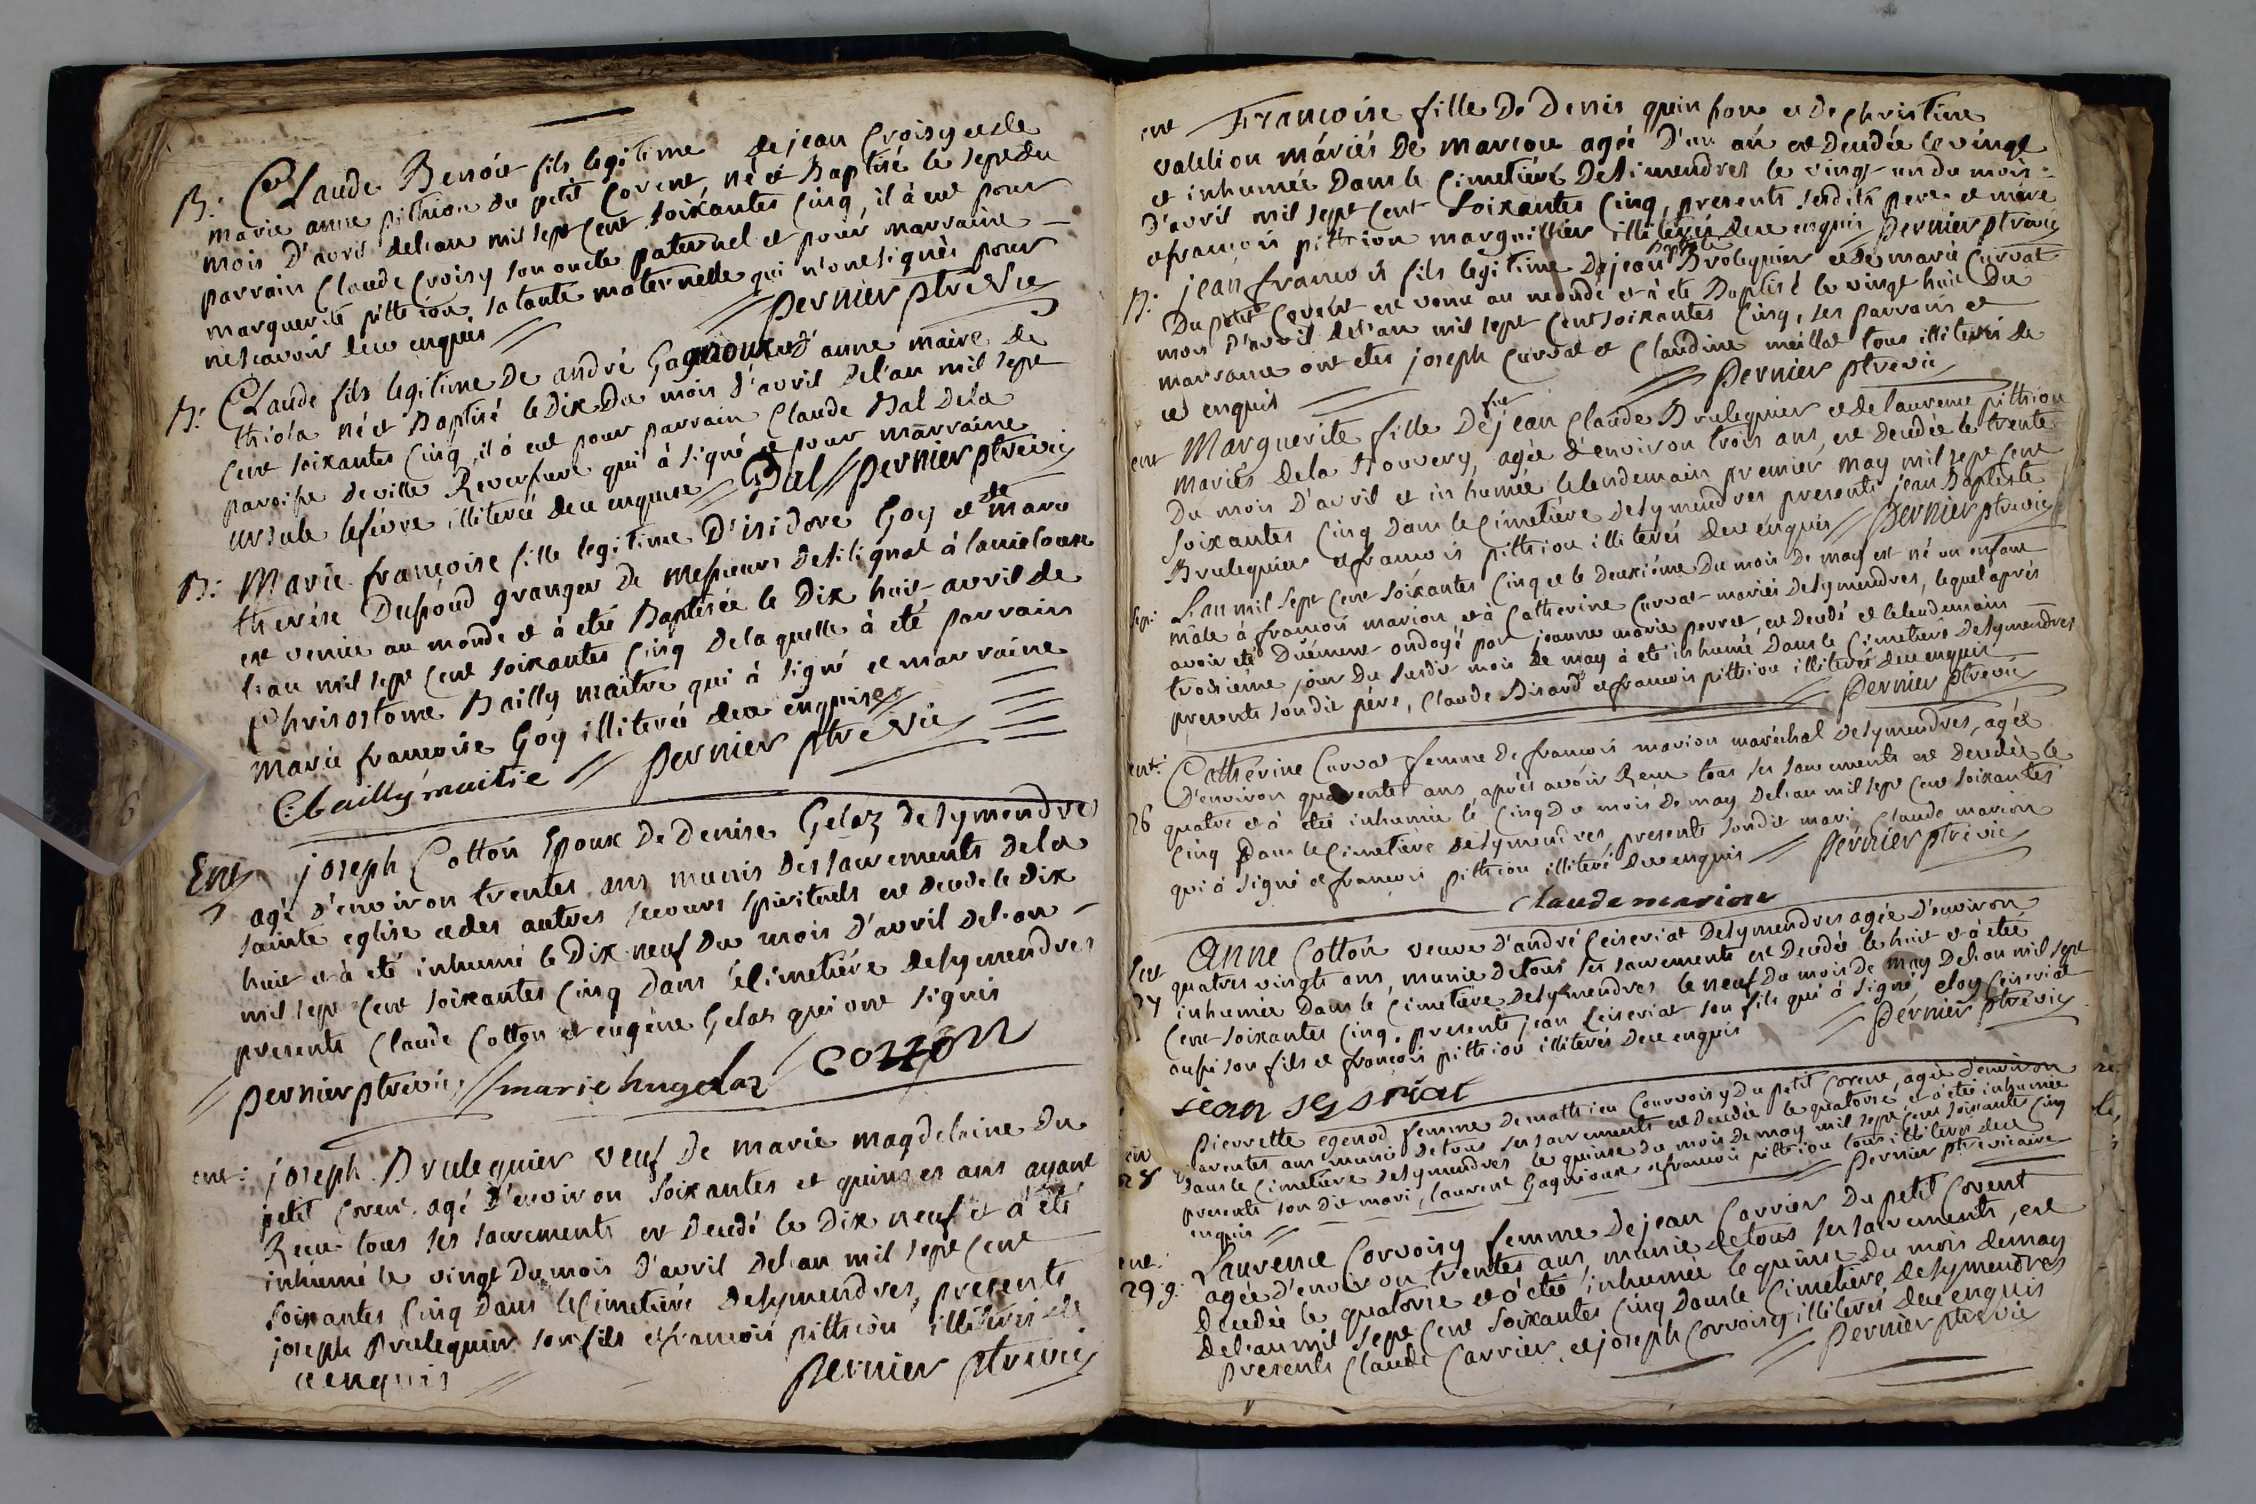 B: Claude Benoit fils legitime de jean Croisy et de
marie anne pithion du petit Corent, né et Baptisé le sept du
mois D'avril del'an mil sept Cent soixantes Cinq, il à eut pour
parrain Claude Croisy son oncle paternel et pour marraine
marguerite pithion sa tante maternelle qui n'ont signés pour
ne sçavoir dece enquis // pernier ptre vic
B: Claude fils legitime De andré Gagnoux et d'anne maire de
thiola né et Baptisé le Dix Du mois D'avril Del'an mil sept
Cent soixantes Cinq, il à eut pour parrain Claude Bal Dela
paroisse deville Reversure qui à signé et pour marraine
ursule lefévre illiterée dece enquise // Bal // pernier ptre vic
B: Marie francoise fille legitime D'isidore Goy et de marie
therése Dupoud granger De Messieurs Desilignat à
est venüe au monde et à eté Baptisée le Dix huit avril de
l'an mil sept Cent soixantes Cinq Dela quelle à eté parrain
Chrisostome Bailly maitre qui à signé et marraine
marie francoise Goy illiterée dece enquise //
C: bailly maitre // pernier ptre vic
Ent joseph Cotton Epoux De Denise Gelaz de symendres
agé D'environ trentes ans munis Des sacrements Dela
sainte eglise et des autres secours spirituels est decedé le dix
huit et à eté inhumé le Dix neuf Du mois D'avril del'an
mil sept Cent soixantes Cinq Dans le Cimetiére de symendres
presents Claude Cotton et eugéne Gelas qui ont signés
// pernier ptre vic // marie hugelaz / cotton
ent: joseph Brulequier veuf De marie magdelaine Du
petit Corent, agé D'environ soixantes et quinzes ans ayant
Reçu tous ses sacrements est Decedé le Dix neuf et à eté
inhumé le vingt Du mois D'avril Del'an mil sept Cent
soixantes Cinq Dans le Cimetiére De symendres, presents
joseph Brulequier son fils et francois pithion illiterés de
ce enquis // pernier ptre vic
ent Francoise fille De Denis quinson et De Christine
valelion máriés De marcou agée D'un an est decedée le vingt
et inhumée Dans le Cimetiére De simendres le vingt un du mois
D'avril mil sept Cent soixantes Cinq, presents sesdits pere et mére
et francois pithion marguillier illiterés dece enquis // pernier ptre vic
B: jean francois fils legitime De jean Baptiste Brulequier et de marie Curvat
Du petit Corent est venu au monde et à eté Baptisé le vingt huit Du
mois D'avril del'an mil sept Cent soixantes Cinq, ses parrain et
marraine ont etes joseph Curvat et Claudine meillat tous illiterés de
ce enquis // pernier ptre vic
ent Marguerite fille De fut jean Claude Brulequier et de laurence pithion
mariés dela Rouvery, agée d'environ trois ans, est decedée le trente
Du mois D'avril et inhumée lelendemain premier may mil sept Cent
soixantes Cinq Dans le Cimetiére De symendres presents jean Baptiste
Brulequier et francois pithion illiterés dece enquis // pernier ptre vic
sep: L'an mil sept Cent soixantes Cinq et le deuxiéme Du mois De may est né un enfant
mâle à francois marion et à Catherine Curvat mariés De symendres, lequel aprés
avoir eté Duëment ondoyé par jeanne marie perret est Decedé et lelendemain
troisiéme jour Du susdit mois De may à eté inhumé Dans le Cimetiére De symendres
presents sondit pére, Claude Bisard et francois pithion illiterés dece enquis
// pernier ptre vic
ent: Catherine Curvat femme de francois marion maréchal de symendres, agée
D'environ quarentes ans aprés avoir Reçu tous ses sacrements est Decedée le
26 quatre et à eté inhumée le Cinq Du mois De may Del'an mil sept Cent soixantes
Cinq Dans le Cimetiére De symendres presents sondit mari, Claude marion
qui à signé et francois pithion illiteré dece enquis // pernier ptre vic
claude marion
ent Anne Cotton veuve D'andré Ceiseriat De symendres agée D'environ
27 quatres vingts ans, munie De tous ses sacrements est Decedée le huit et à eté
inhumée Dans le Cimetiére De symendres le neuf Du mois De may Del'an mil sept
Cent soixantes Cinq, presents jean Ceiseriat son fils qui à signé eloy Ceiseriat
aussi son fils et francois pithion illiterés dece enquis // pernier ptre vic
jean seseriat
en Pierrette egenod femme De mathieu Courvoisy Du petit Corent, agée d'environ
28 ans munie De tous ses sacrements est Decedée le quatorze et à eté inhumée
Dans le Cimetiére De symendres le quinze du mois De may mil sept Cent soixantes Cinq
presents son dit mari, laurent Gagnioux et francois pithion tous illiterés dece
enquis // pernier ptre vicaire
ent: Laurence Corvoisy femme De jean Carrier Du petit Corent
29 g: agée d'environ trentes ans, munie de tous ses sacrements, est
Decedée le quatorze et à eté inhumée le quinze Du mois de may
Del'an mil sept Cent soixantes Cinq Dans le Cimetiére De symendres
presents Claude Carrier, et joseph Corvoisy illiterés dece enquis
// pernier ptre vic